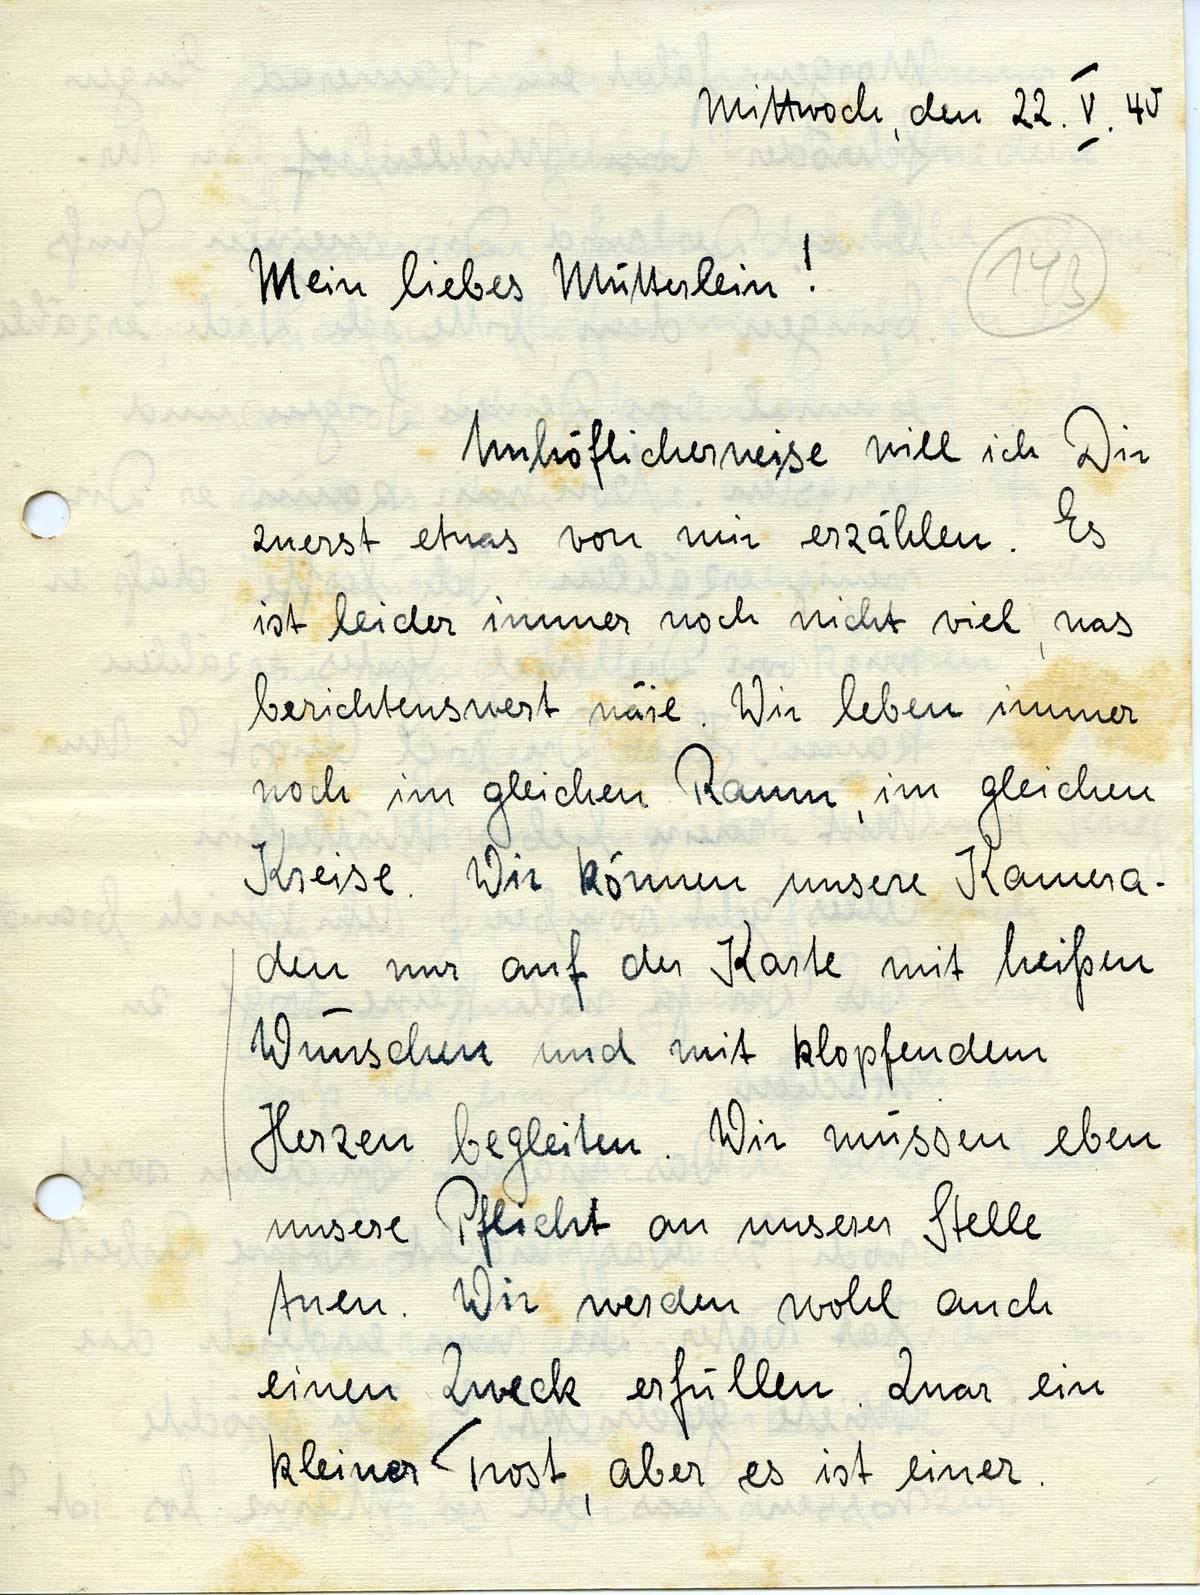 Mittwoch, den 22. V. 40
143
Mein liebes Mütterlein!
Unhöflicherweise will ich Dir
zuerst etwas von mir erzählen. Es
ist leider immer noch nicht viel, was
berichtenswert wäre. Wir leben immer
noch im gleichen Raum, im gleichen
Kreise. Wir können unsere Kamera-
den nur auf der Karte mit heißen
Wünschen und mit klopfendem
Herzen begleiten. Wir müssen eben
unsere Pflicht an unserer Stelle
tuen. Wir werden wohl auch
einen Zweck erfüllen. Zwar ein
kleiner Trost, aber es ist einer.